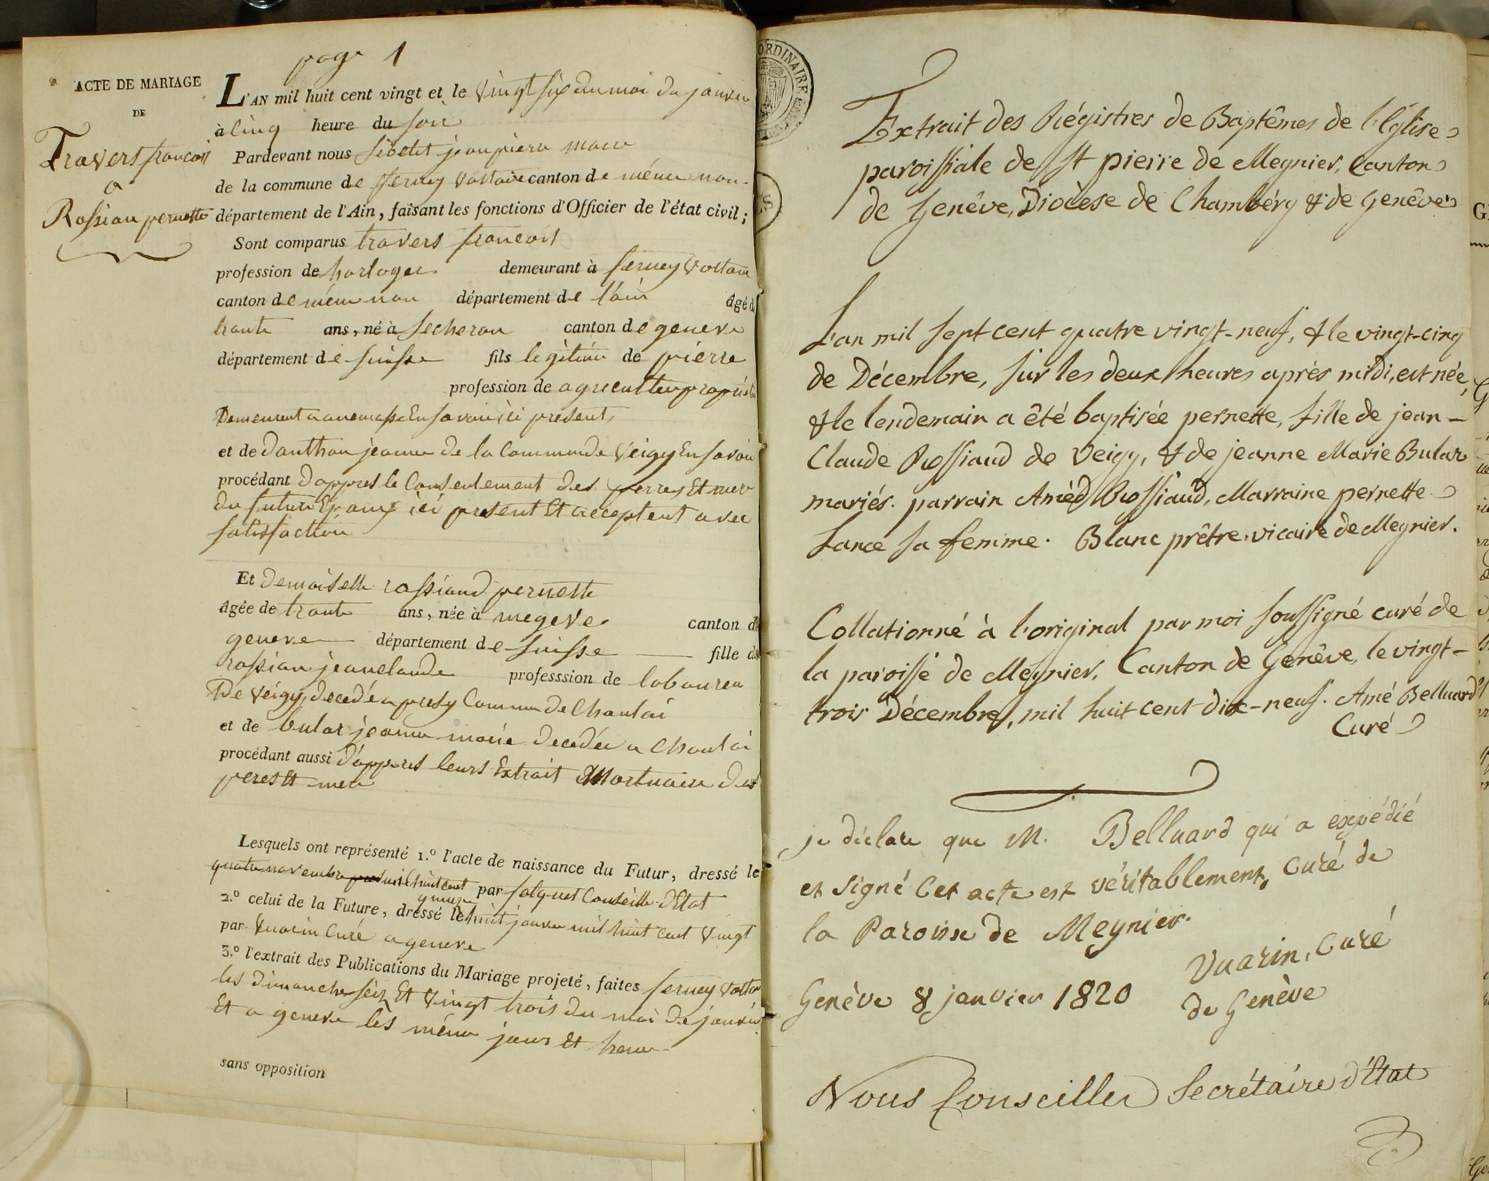 page 1
ACTE DE MARIAGE
DE
Travers francois
a
Rossian pernette
L'AN mil huit cent vingt et le vingt six du moi de janvier
à cinq heure du soir
Pardevant nous jean piere maire
de la commune de ferney voltaire canton de même non
département de l'Ain, faisant les fonctions d'Officier de l'état civil;
Sont comparus travers francois
profession de horloger demeurant à ferney voltaire
canton de même non département de l'ain âgé d
trante ans, né à secheron canton de geneve
département de suisse fils legitime de pierre
profession de agriculteur propriét
Demeurant a annemasse En savoir ici present
et de danthon jeanne de la Commune de Veigy En savoi
procédant d'appres le Consentement des perres Et mere
du futur Epoux ici present Et acceptent avec
satisfaction
Et demoiselle rossiand pernette
âgée de trante ans, née à megeve canton de
geneve département de suisse fille de
rossian jeanclaude professsion de laboureu
De Veigy decedé a presy Commune de Choulai
et de bular jeanne marie decedée a Choulai
procédant aussi d'appres leurs Extrait Mortuaire des
peres Et mere
Lesquels ont représenté 1.° l'acte de naissance du Futur, dressé le
quatre novembre mil huit cent quinze par Conseille d'Etat
2.° celui de la Future, dressé le huit janvie mil huit cent vingt
par Vuarin Curé a geneve
3.° l'extrait des Publications du Mariage projeté, faites ferney voltair
les dimanche seiz Et vingt trois du moi de janvier
Et a geneve les même jours Et heure
sans opposition
ORDINAIRE
Extrait des Régistres de Baptêmes de l'Eglise
paroissiale de St pierre de Meynier, Canton
de Genêve, Diocèse de Chambéry & de Genêve
L'an mil sept cent quatre vingt-neuf, & le vingt-cinq
de Décembre, sur les deux heures après midi, est née,
& le lendemain a été baptisée pernette, fille de jean-
Claude Rossiaud de Veigy, & de jeanne Marie Bular
mariés. parrain Améd Rossiaud, Marraine pernette
Lance sa femme. Blanc prêtre, vicaire de Meynier.
Collationné à l'original par moi soussigné curé de
la paroisse de Meynier, Canton de Genêve, le vingt-
trois Décembre, mil huit cent dix-neuf. Amé Belluard
Curé
je déclare que M. Belluard qui a expédié
et signé Cet acte est véritablement, Curé de
la Paroisse de Meynier.
Vuarin, Curé
de Genève
Genève 8 janvier 1820
Nous Conseiller Secrétaire d'Etat